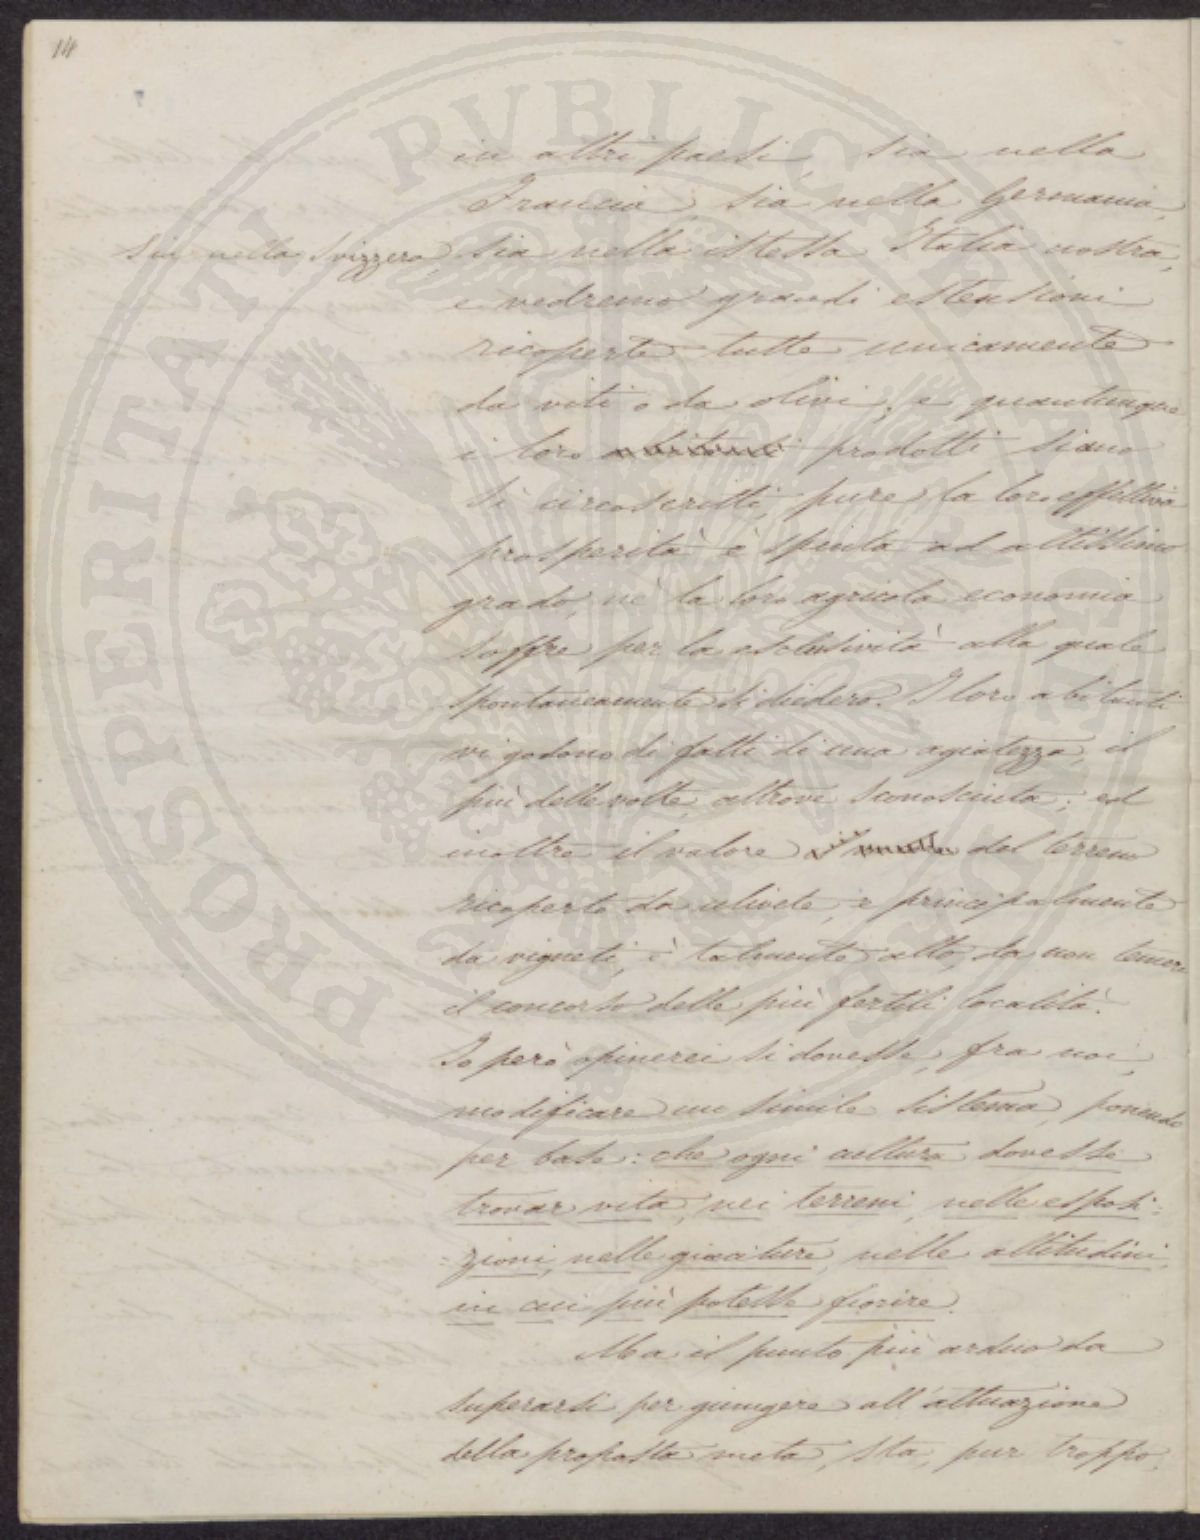 14
PROSPERITATI PVBLICAE AVGENDAE
in altri paesi, sia nella
Francia, sia nella Germania,
sia nella Svizzera, sia nella istessa Italia nostra,
e vedremo grandi estensioni
ricoperte tutte unicamente
da viti o da olivi; e quantunque
i loro prodotti siano
sì circoscritti, pure la loro effettiva
prosperità è spinta ad altissimo
grado, nè la loro agricola economia
soffre per la esclusività alla quale
spontaneamente si diedero. I loro abitanti
vi godono di fatti di una agiatezza, il
più delle volte, altrove sconosciuta; ed
inoltre il valore del terreno
ricoperto da uliveti, e principalmente
da vigneti, è talmente alto, da non temere
il concorso delle più fertili località.
Io però opinerei si dovesse, fra noi,
modificare un simile sistema, ponendo
per base: che ogni cultura dovesse
trovar vita, nei terreni, nelle esposi=
=zioni, nelle giaciture, nelle altitudini,
in cui più potesse fiorire.
Ma il punto più arduo da
superarsi per giungere all'attuazione
della proposta meta, sta, pur troppo,